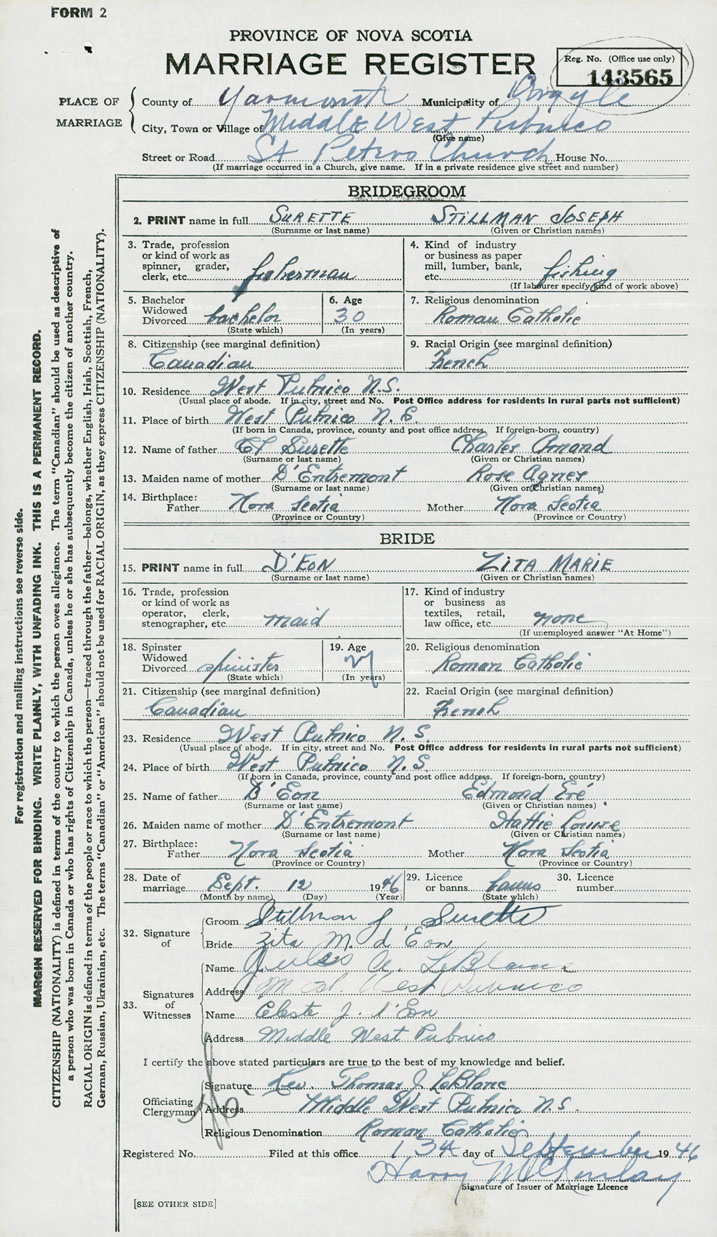 FORM 2
PROVINCE OF NOVA SCOTIA
MARRIAGE REGISTER
Reg. No. (Office use only)
143565
PLACE OF MARRIAGE
County of Yarmouth Municipality of Argyle
City, Town or Village of Middle West Pubnico
(Give name)
Street or Road St Peters Church House No.
(If marriage occurred in a Church, give name. If in a private residence give street and number)
BRIDEGROOM
2. PRINT name in full SURETTE STILLMAN JOSEPH
(Surname or last name) (Given or Christian names)
3. Trade, profession or kind of work as spinner, grader, clerk, etc. fisherman
4. Kind of industry or business as paper mill, lumber, bank, etc. fishing
(If labourer specify kind of work above)
5. Bachelor Widowed Divorced bachelor
(State which)
6. Age 30
(In years)
7. Religious denomination
Roman Catholic
8. Citizenship (see marginal definition)
Canadian
9. Racial Origin (see marginal definition)
French
10. Residence West Pubnico N.S.
(Usual place of abode. If in city, street and No. Post Office address for residents in rural parts not sufficient)
11. Place of birth West Pubnico N.S.
(If born in Canada, province, county and post office address. If foreign-born, country)
12. Name of father Surette Charles Amand
(Surname or last name) (Given or Christian names)
13. Maiden name of mother D'Entremont Rose Agnes
(Surname or last name) (Given or Christian names)
14. Birthplace: Father Nova Scotia Mother Nova Scotia
(Province or Country) (Province or Country)
BRIDE
15. PRINT name in full D'EON ZITA MARIE
(Surname or last name) (Given or Christian names)
16. Trade, profession or kind of work as operator, clerk, stenographer, etc. maid
17. Kind of industry or business as textiles, retail, law office, etc. none
(If unemployed answer "At Home")
18. Spinster Widowed Divorced spinister
(State which)
19. Age 27
(In years)
20. Religious denomination
Roman Catholic
21. Citizenship (see marginal definition)
Canadian
22. Racial Origin (see marginal definition)
French
23. Residence West Pubnico N.S.
(Usual place of abode. If in city, street and No. Post Office address for residents in rural parts not sufficient)
24. Place of birth West Pubnico N.S.
(If born in Canada, province, county and post office address. If foreign-born, country)
25. Name of father D'Eon Edmond
(Surname or last name) (Given or Christian names)
26. Maiden name of mother D'Entremont Hattie Louise
(Surname or last name) (Given or Christian names)
27. Birthplace: Father Nova Scotia Mother Nova Scotia
(Province or Country) (Province or Country)
28. Date of marriage Sept. 12 1946
(Month by name) (Day) (Year)
29. Licence or banns banns
(State which)
30. Licence number
32. Signature of
Groom Stillman J Surette
Bride Zita M. d'Eon
33. Signatures of Witnesses
Name A. LeBlanc
Address Mid. West Pubnico
Name Celeste J. d'Eon
Address Middle West Pubnico
I certify the above stated particulars are true to the best of my knowledge and belief.
Officiating Clergyman
Signature Rev. Thomas J. LeBlanc
Address Middle West Pubnico N.S.
Religious Denomination Roman Catholic
Registered No. Filed at this office 13th day of September 1946
Harry McKinlay
Signature of Issuer of Marriage Licence
[SEE OTHER SIDE]
For registration and mailing instructions see reverse side.
MARGIN RESERVED FOR BINDING. WRITE PLAINLY, WITH UNFADING INK. THIS IS A PERMANENT RECORD.
CITIZENSHIP (NATIONALITY) is defined in terms of the country to which the person owes allegiance. The term "Canadian" should be used as descriptive of
a person who was born in Canada or who has rights of Citizenship in Canada, unless he or she has subsequently become the citizen of another country.
RACIAL ORIGIN is defined in terms of the people or race to which the person—traced through the father—belongs, whether English, Irish, Scottish, French,
German, Russian, Ukrainian, etc. The terms "Canadian" or "American" should not be used for RACIAL ORIGIN, as they express CITIZENSHIP (NATIONALITY).